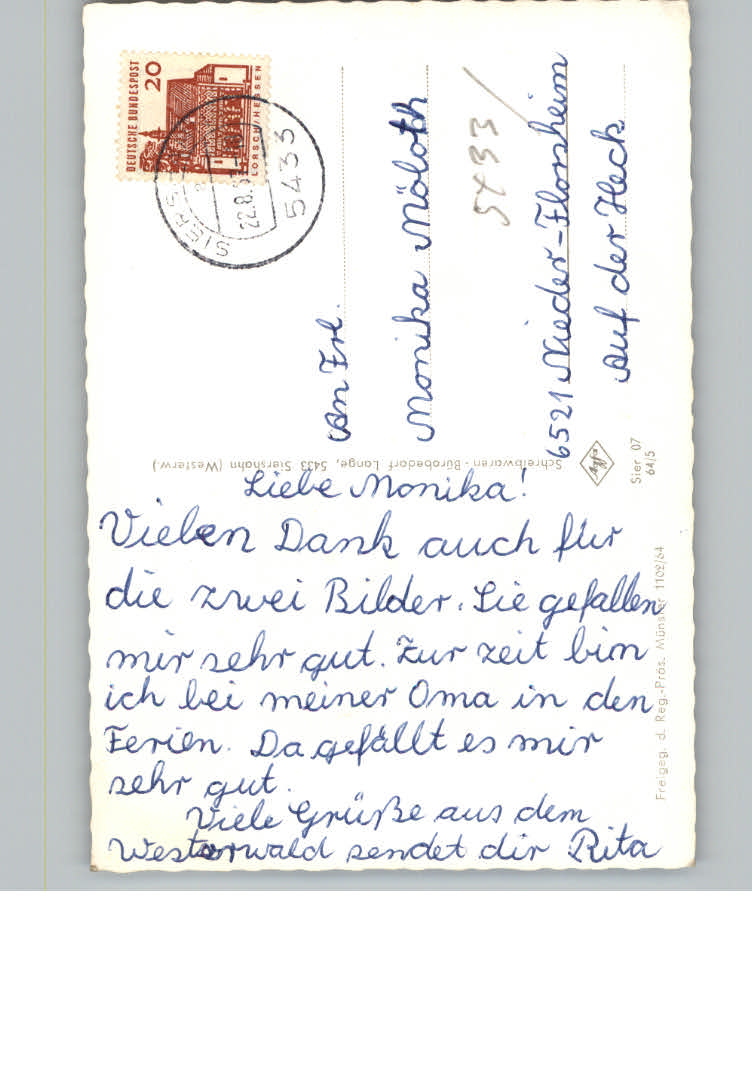 Liebe Monika!
Vielen Dank auch für
die zwei Bilder. Sie gefallen
mir sehr gut. Zur zeit bin
ich bei meiner Oma in den
Ferien. Da gefällt es mir
sehr gut.
Viele Grüße aus dem
Westerwald sendet dir Rita
An Frl.
Monika Möloth
5433
6521 Nieder-Flörsheim
Auf der Heck
DEUTSCHE BUNDESPOST
20
LORSCH/HESSEN
5433
22.8.
Schreibwaren - Bürobedarf Lange, 5433 Siershahn (Westerw)
Agfa
Sier 07
64/5
Freigeg. d. Reg.-Präs. Münster 1102/64